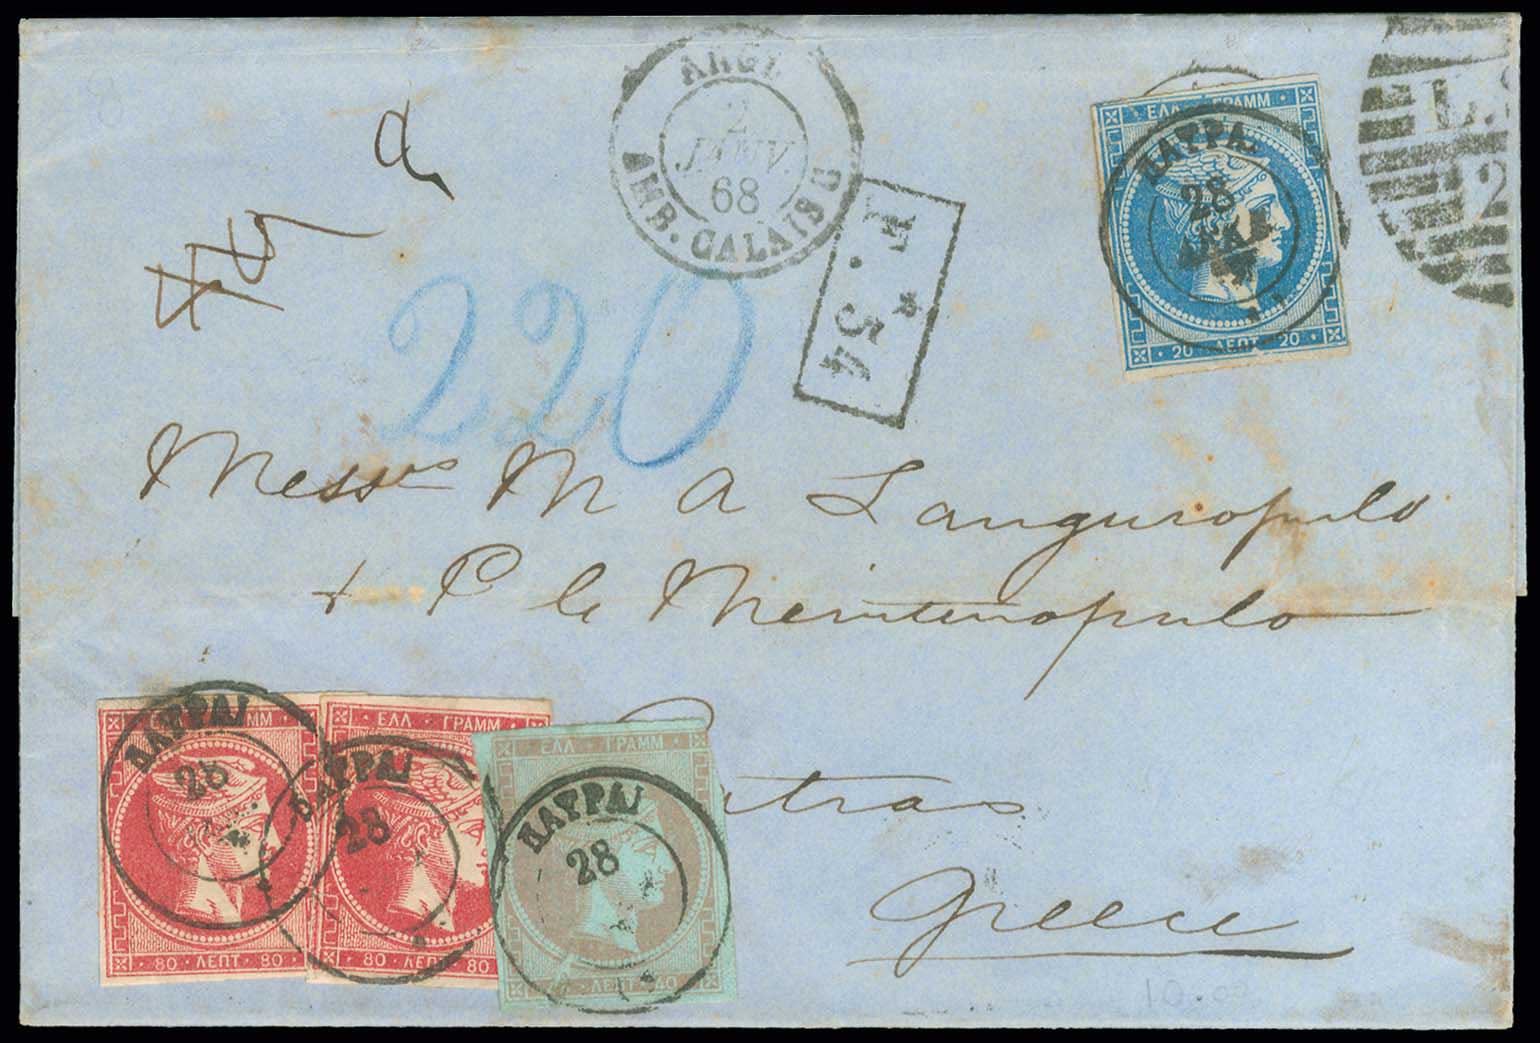 ANGL
2
JANV.
68
AMB. CALAIS G
F. 54
220
ΕΛΛ ΓΡΑΜΜ
ΠΑΤΡΑΙ
28
20 · ΛΕΠΤ · 20
L.
2
Messrs M A Languropulo
+ P le Meintenopulo
Patras
Greece
ΕΛΛ ΓΡΑΜΜ
ΠΑΤΡΑΙ
28
80 · ΛΕΠΤ · 80
ΕΛΛ ΓΡΑΜΜ
ΠΑΤΡΑΙ
28
80 · ΛΕΠΤ · 80
ΕΛΛ ΓΡΑΜΜ
ΠΑΤΡΑΙ
28
ΛΕΠΤ · 40